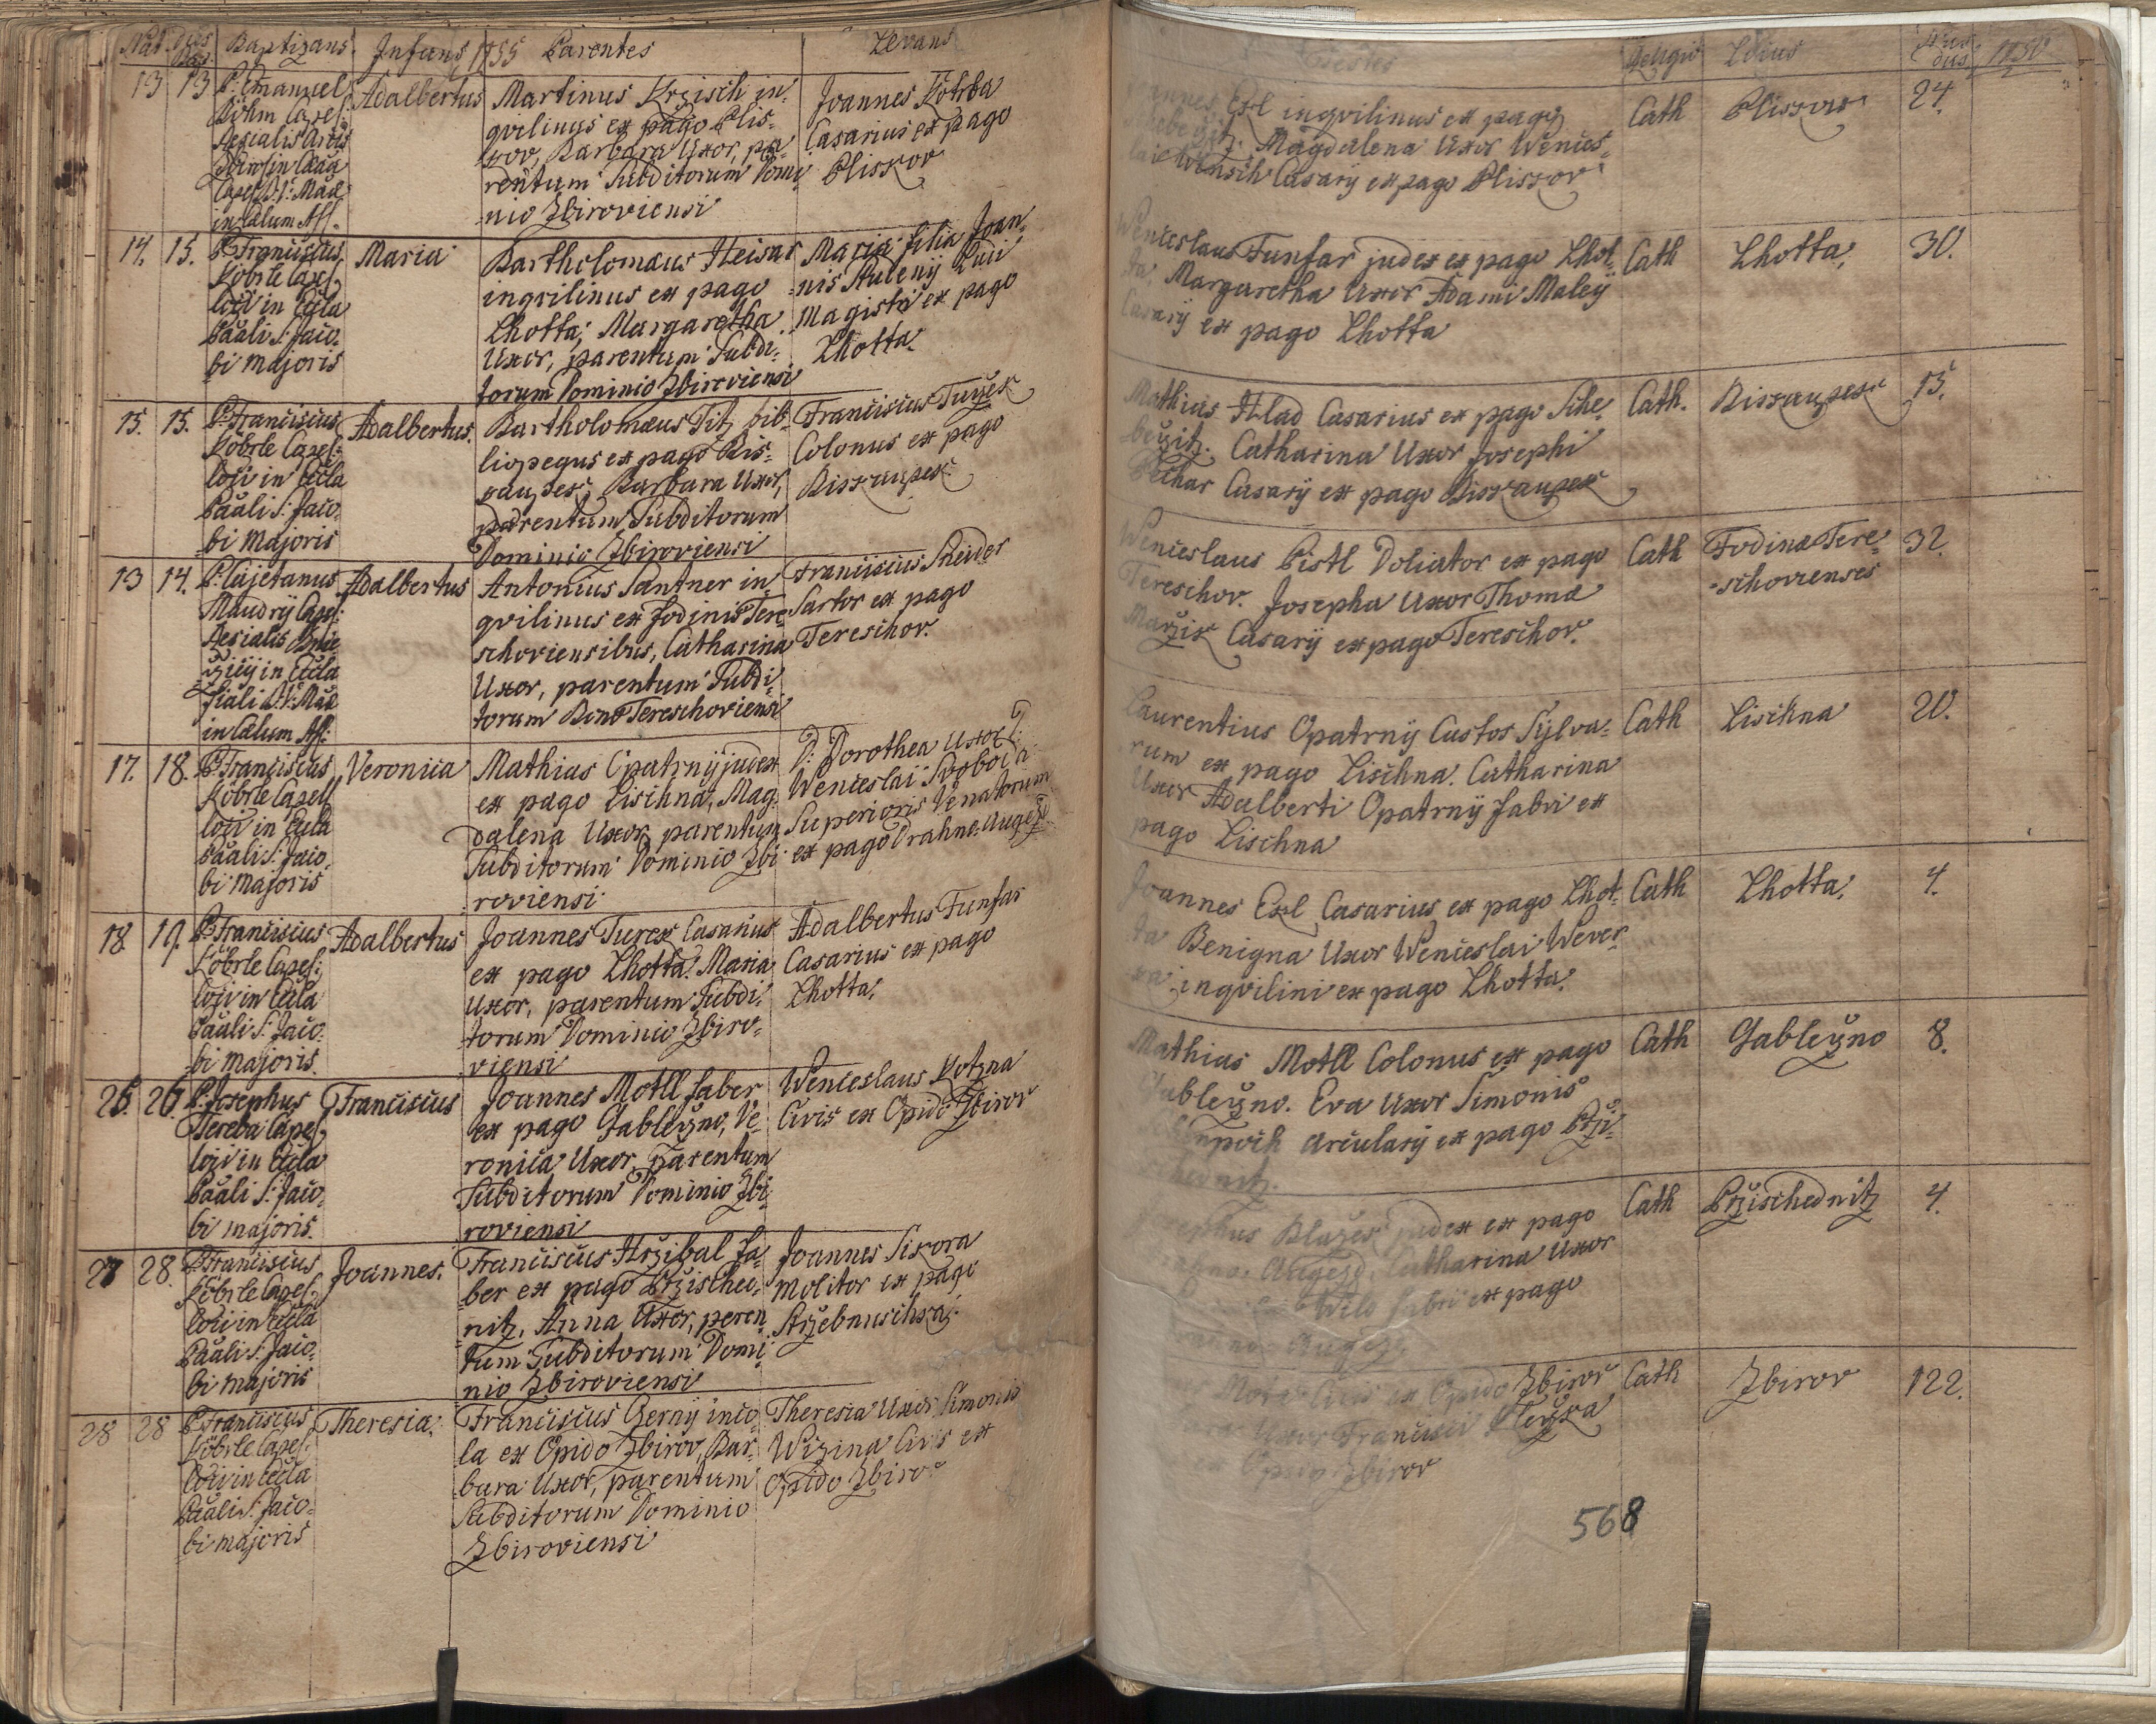 Baptizans Infans 1755 Parentes Levans
13 13 P. Emanuel
Böhm Capel:
Adalbertus
Martinus Krzisch in-
qvilinus ex pago Plis-
kov, Barbara Uxor, pa-
rentum Subditorum Domi-
nio Zbiroviensi
Joannes Kotrba
Casarius ex pago
Pliskov
14. 15. P. Franciscus
Köbrle Capel:
loci in Eccla
Paāli S: Jaco-
bi Majoris
Maria
Bartholomæus Heisar
inqvilinus ex pago
Lhotta, Margaretha
Uxor, parentum Subdi-
torum Dominio Zbiroviensi
Maria filia Joan-
nis Aulenij Ludi
Magistri ex pago
Lhotta
15. 15. P. Franciscus
Köbrle Capel:
loci in Eccla
Paāli S: Jaco-
bi Majoris
Adalbertus.
Bartholomæus Titz bib-
liopegus ex pago Bis-
kaupek, Barbara Uxor,
parentum Subditorum
Dominio Zbiroviensi
Franciscus Turzek
Colonus ex pago
Biskaupek
13 14. P. Cajetanus
Maudrÿ Capel:
in Eccla
in Cælum Ass:
Adalbertus
Antonius Santner in-
qvilinus ex Fodinis Tere-
schoviensibus, Catharina
Uxor, parentum Subdi-
torum Bono Tereschoviensi
Franciscus Sneider
Sartor ex pago
Tereschov.
17. 18. P. Franciscus
Köbrle Capell
loci in Eccla
Paāli S: Jaco-
bi Majoris
Veronica
Mathias Opatrnÿ judex
ex pago Lischna, Mag-
dalena Uxor, parentum
Subditorum Dominio Zbi-
roviensi.
D: Dorothea Uxor D:
Wenceslai Swoboda
Superioris Venatorum
ex pago Drahno-Augezd
18 19. P. Franciscus
Köbrle Capel:
loci in Eccla
Paāli S: Jaco-
bi Majoris.
Adalbertus
Joannes Turek Casarius
ex pago Lhotta. Maria
Uxor, parentum Subdi-
torum Dominio Zbiro-
viensi
Adalbertus Funfar
Casarius ex pago
Lhotta.
26. 26. P. Josephus
Tereba Capel:
loci in Eccla
Paāli S: Jaco-
bi Majoris.
Franciscus
Joannes Motll faber
ex pago Gableyno, Ve-
ronica Uxor, parentum
Subditorum Dominio Zbi-
roviensi
Wenceslaus Kotzna
Civis ex Opido Zbirov
27 28. P. Franciscus
Köbrle Capel:
loci in Eccla
Paāli S: Jaco-
bi Majoris
Joannes.
Franciscus Hrzibal fa-
ber ex pago Przisched-
nitz, Anna Uxor, paren-
tum Subditorum Domi-
nio Zbiroviensi
Joannes Sikora
Molitor ex pago
Strzebnuschka.
28 28 P. Franciscus
Köbrle Capel:
loci in Eccla
Paāli S: Jaco-
bi Majoris
Theresia.
Franciscus Czernÿ inco-
la ex Opido Zbirov, Bar-
bara Uxor, parentum
Subditorum Dominio
Zbiroviensi
Theresia Uxor Simonis
Wizina Civis ex
Opido Zbirov
Testes Religio Locus
Exl inqvilinus ex pago
Magdalena Uxor Wences-
Casarÿ ex pago Pliskov
Cath Pliskov 24.
Wenceslaus Funfar judex ex pago Lhot-
ta, Margaretha Uxor Adami Maleÿ
Casarÿ ex pago Lhotta
Cath Lhotta. 30.
Mathias Hlad Casarius ex pago Sche-
betzitz. Catharina Uxor Josephi
Pechar Casarÿ ex pago Biskaupek
Cath. Biskaupek 15.
Wenceslaus Pistl Doliator ex pago
Tereschov. Josepha Uxor Thomæ
Marzik Casarÿ ex pago Tereschov.
Cath Fodinæ Tere-
-schovienses 32.
Laurentius Opatrnÿ Custos Sÿlva-
rum ex pago Lischna. Catharina
Uxor Adalberti Opatrnÿ fabri ex
pago Lischna
Cath Lischna 20.
Joannes Exl Casarius ex pago Lhot-
ta Benigna Uxor Wenceslai Wever-
ka inqvilini ex pago Lhotta.
Cath Lhotta. 4.
Mathias Motll Colonus ex pago
Gableyno. Eva Uxor Simonis
Arcularÿ ex pago Przi-
Cath Gableyno 8.
Josephus Blazek judex ex pago
Augezd. Catharina Uxor
fabri ex pago
Augezd.
Cath Przischednitz 4.
Civis ex Opido Zbirov
Uxor Francisci
Opido Zbirov
Cath Zbirov 122.
568